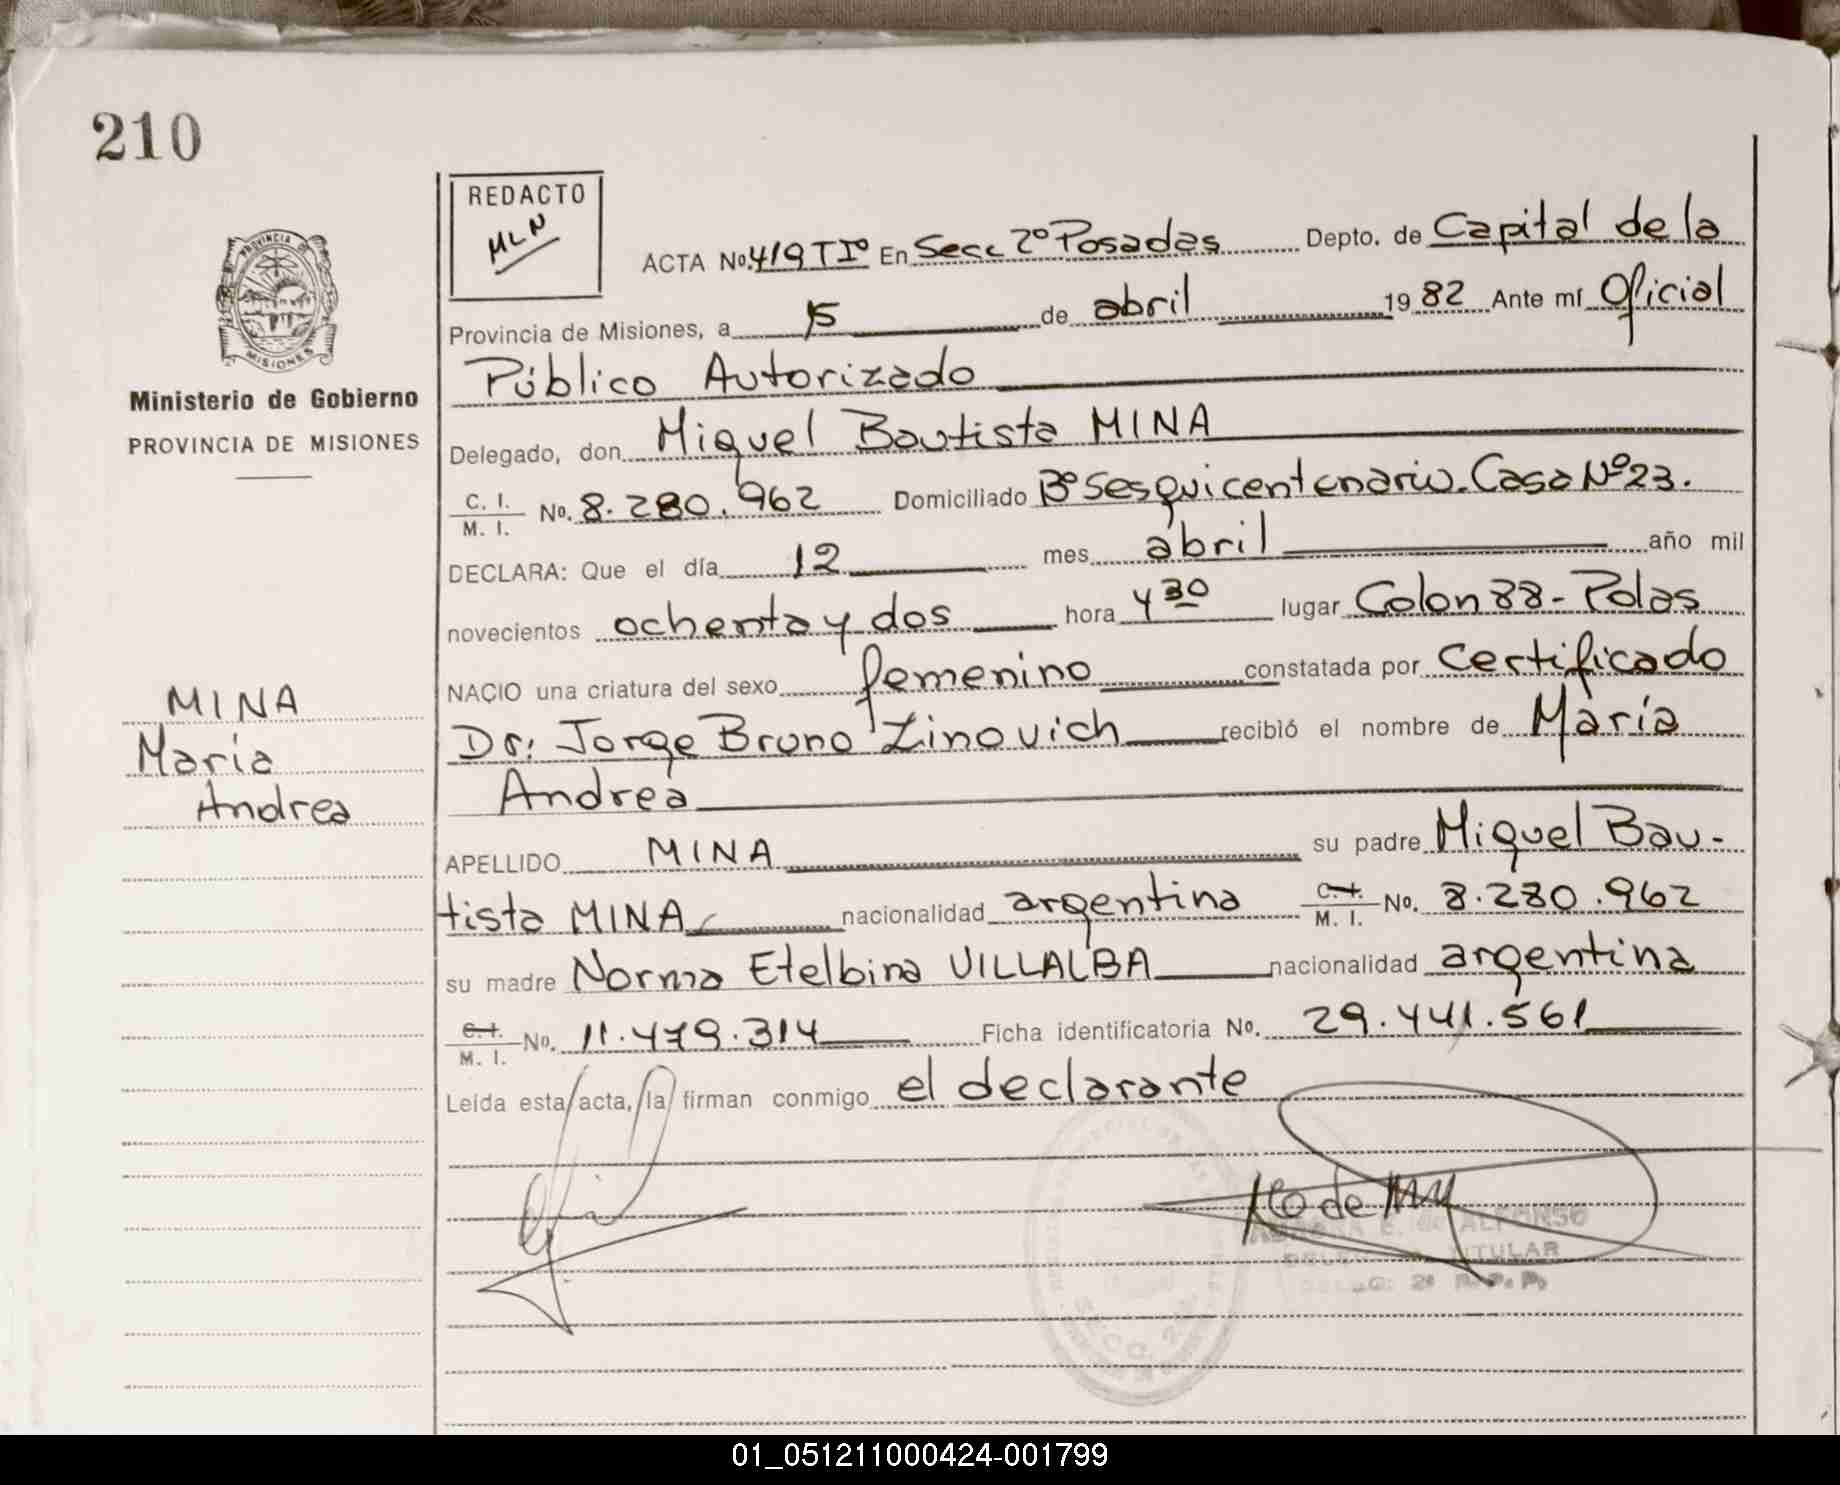 210
REDACTO
MLN
ACTA No. 419 TIº En Secc 2º Posadas Depto. de Capital de la
Provincia de Misiones, a 15 de abril 1982 Ante mí Oficial
Público Autorizado
Delegado, don Miguel Bautista MINA
C. I.
M. I.
No. 8.280.962 Domiciliado Bº Sesquicentenario. Casa Nº 23.
DECLARA: Que el día 12 mes abril año mil
novecientos ochenta y dos hora 4 30 lugar Colon 88 - Pdas
NACIO una criatura del sexo femenino constatada por Certificado
Dr: Jorge Bruno Zinovich recibió el nombre de María
Andrea
APELLIDO MINA su padre Miguel Bau-
tista MINA nacionalidad argentina C. I. M. I. No. 8.280.962
su madre Norma Etelbina VILLALBA nacionalidad argentina
C. I. M. I. No. 11.479.314 Ficha identificatoria No. 29.441.561
Leída esta acta, la firman conmigo el declarante
E. de ALFONSO
TITULAR
PROVINCIA DE
MISIONES
Ministerio de Gobierno
PROVINCIA DE MISIONES
MINA
María
Andrea
01_051211000424-001799